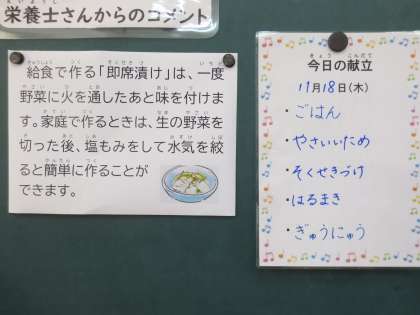 栄養士さんからのコメント
給食で作る「即席漬け」は、一度
野菜に火を通したあと味を付けま
す。家庭で作るときは、生の野菜を
切った後、塩もみをして水気を絞
ると簡単に作ることが
できます。
今日の献立
11月18日(木)
・ごはん
・やさいいため
・そくせきづけ
・はるまき
・ぎゅうにゅう